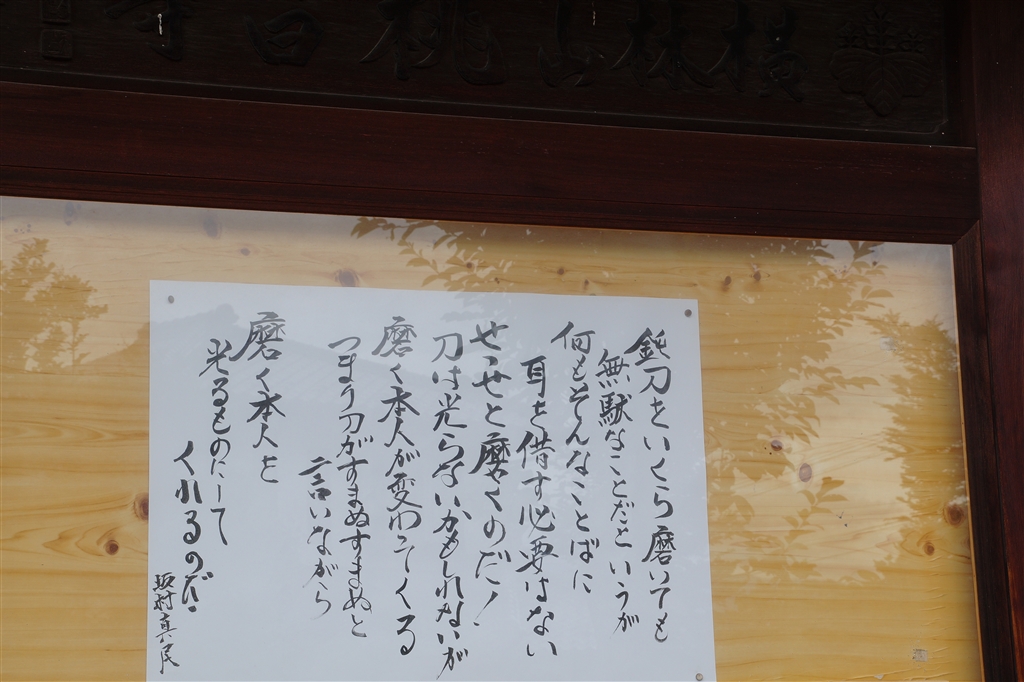 鈍刀をいくら磨いても
無駄なことだというが
何もそんなことばに
耳を借す必要はない
せっせと磨くのだ！
刀は光らないかもしれないが
磨く本人が変わってくる
つまり刀がすまぬすまぬと
言いながら
磨く本人を
光るものにして
くれるのだ
坂村真民